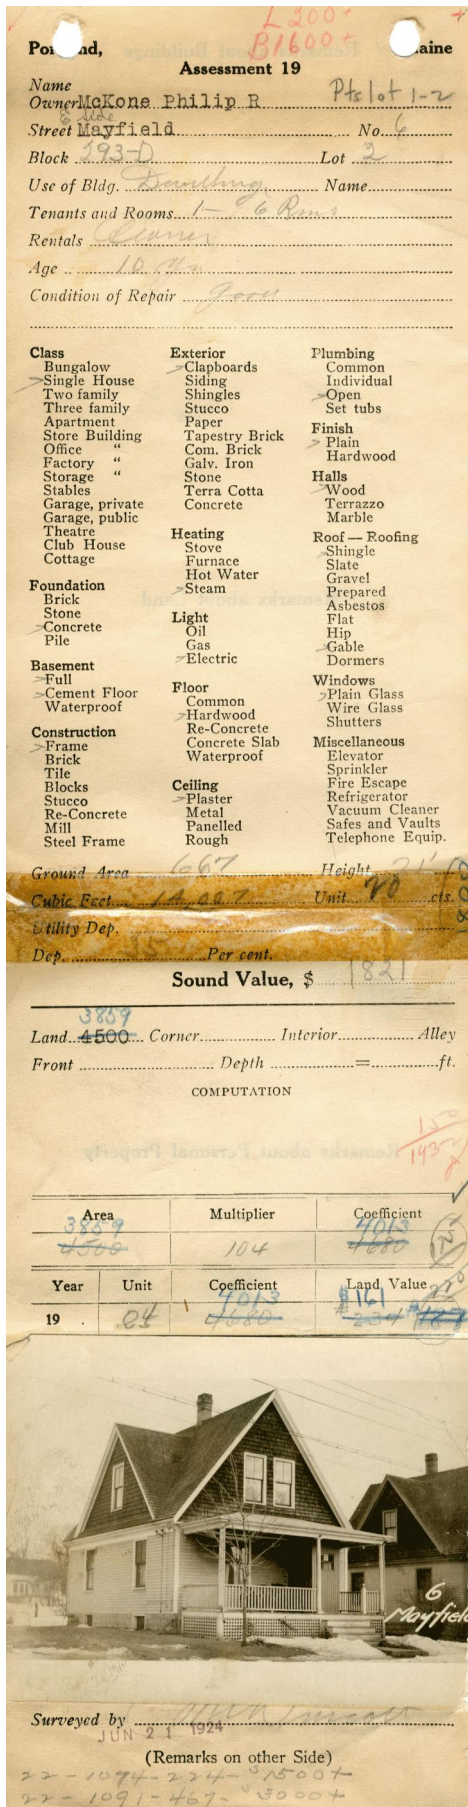 L 200+
B 1600+
Portland, Maine
Assessment 19
Name
Owner McKone Philip R Pts lot 1-2
E Side
Street Mayfield No. 6
Block 293-D Lot 2
Use of Bldg. Dwelling Name
Tenants and Rooms 1 - 6 Rms
Rentals Owner
Age 10 Yrs
Condition of Repair good
Class
Bungalow
Single House
Two family
Three family
Apartment
Store Building
Office "
Factory "
Storage "
Stables
Garage, private
Garage, public
Theatre
Club House
Cottage
Foundation
Brick
Stone
Concrete
Pile
Basement
Full
Cement Floor
Waterproof
Construction
Frame
Brick
Tile
Blocks
Stucco
Re-Concrete
Mill
Steel Frame
Exterior
Clapboards
Siding
Shingles
Stucco
Paper
Tapestry Brick
Com. Brick
Galv. Iron
Stone
Terra Cotta
Concrete
Heating
Stove
Furnace
Hot Water
Steam
Light
Oil
Gas
Electric
Floor
Common
Hardwood
Re-Concrete
Concrete Slab
Waterproof
Ceiling
Plaster
Metal
Panelled
Rough
Plumbing
Common
Individual
Open
Set tubs
Finish
Plain
Hardwood
Halls
Wood
Terrazzo
Marble
Roof — Roofing
Shingle
Slate
Gravel
Prepared
Asbestos
Flat
Hip
Gable
Dormers
Windows
Plain Glass
Wire Glass
Shutters
Miscellaneous
Elevator
Sprinkler
Fire Escape
Refrigerator
Vacuum Cleaner
Safes and Vaults
Telephone Equip.
Ground Area 667 Height 21'
Cubic Feet 14,007 Unit 20 cts.
Utility Dep.
Dep. 35 Per cent.
Sound Value, $ 1821
3859
Land 4500 Corner Interior Alley
Front Depth = ft.
COMPUTATION
150
1432
Area Multiplier Coefficient
3859 4013
4500 104 4680
Year Unit Coefficient Land Value
4013 $161
19 04 4680 234 187
6
Mayfield
Surveyed by
JUN 21 1924
(Remarks on other Side)
22 - 1094 - 224 - $1500+
22 - 1091 - 467 - $3000+